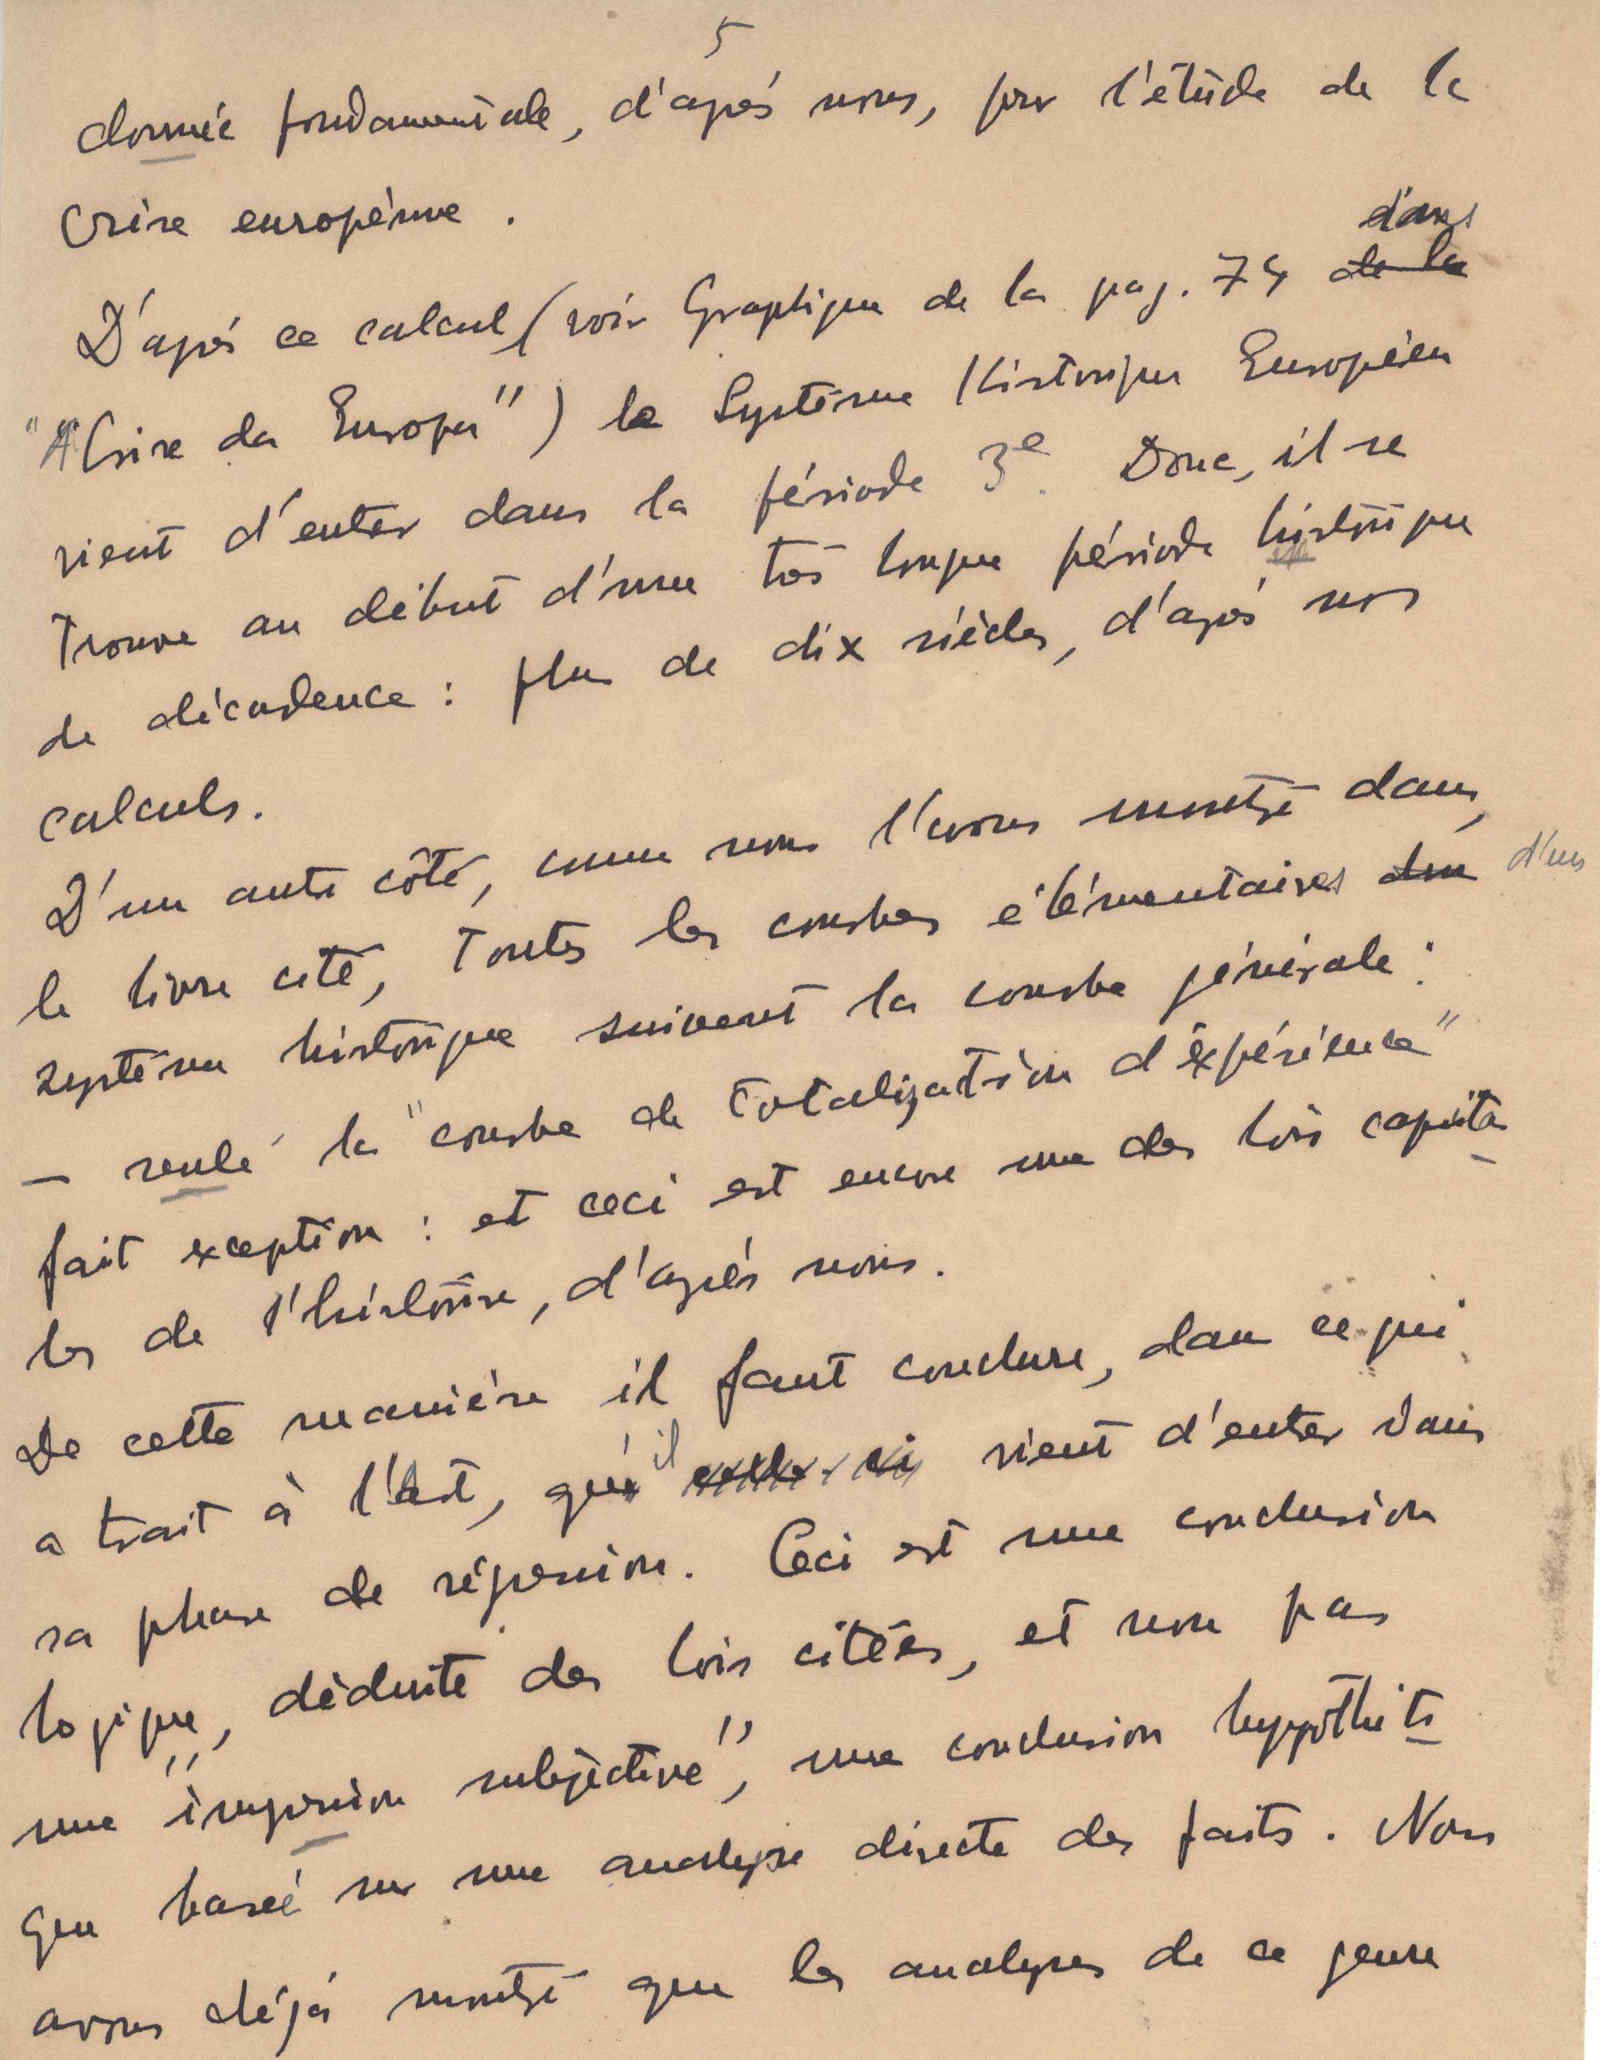 5
donnée fondamentale, d'après nous, pour l'étude de la
Crise européenne.
dans
D'après ce calcul (voir Graphique de la pag. 74 de la
"A Crise da Europa") le Système Historique Européen
vient d'entrer dans la période 3e. Donc, il se
trouve au début d'une très longue période historique
de décadence : plus de dix siècles, d'après nos
calculs.
D'un autre côté, comme nous l'avons montré dans
le livre cité, toutes les courbes élémentaires d'un
système historique suivent la courbe générale :
— seule la "courbe de totalization d'éxpérience"
fait exception : et ceci est encore une des lois capita
les de l'histoire, d'après nous.
De cette manière il faut conclure, dans ce qui
a trait à l'art, qu'il vient d'entrer dans
sa phase de régression. Ceci est une conclusion
logique, déduite des lois citées, et non pas
une "impression subjective", une conclusion hyppothéti
que basée sur une analyse directe des faits. Nous
avons déjà montré que les analyses de ce genre